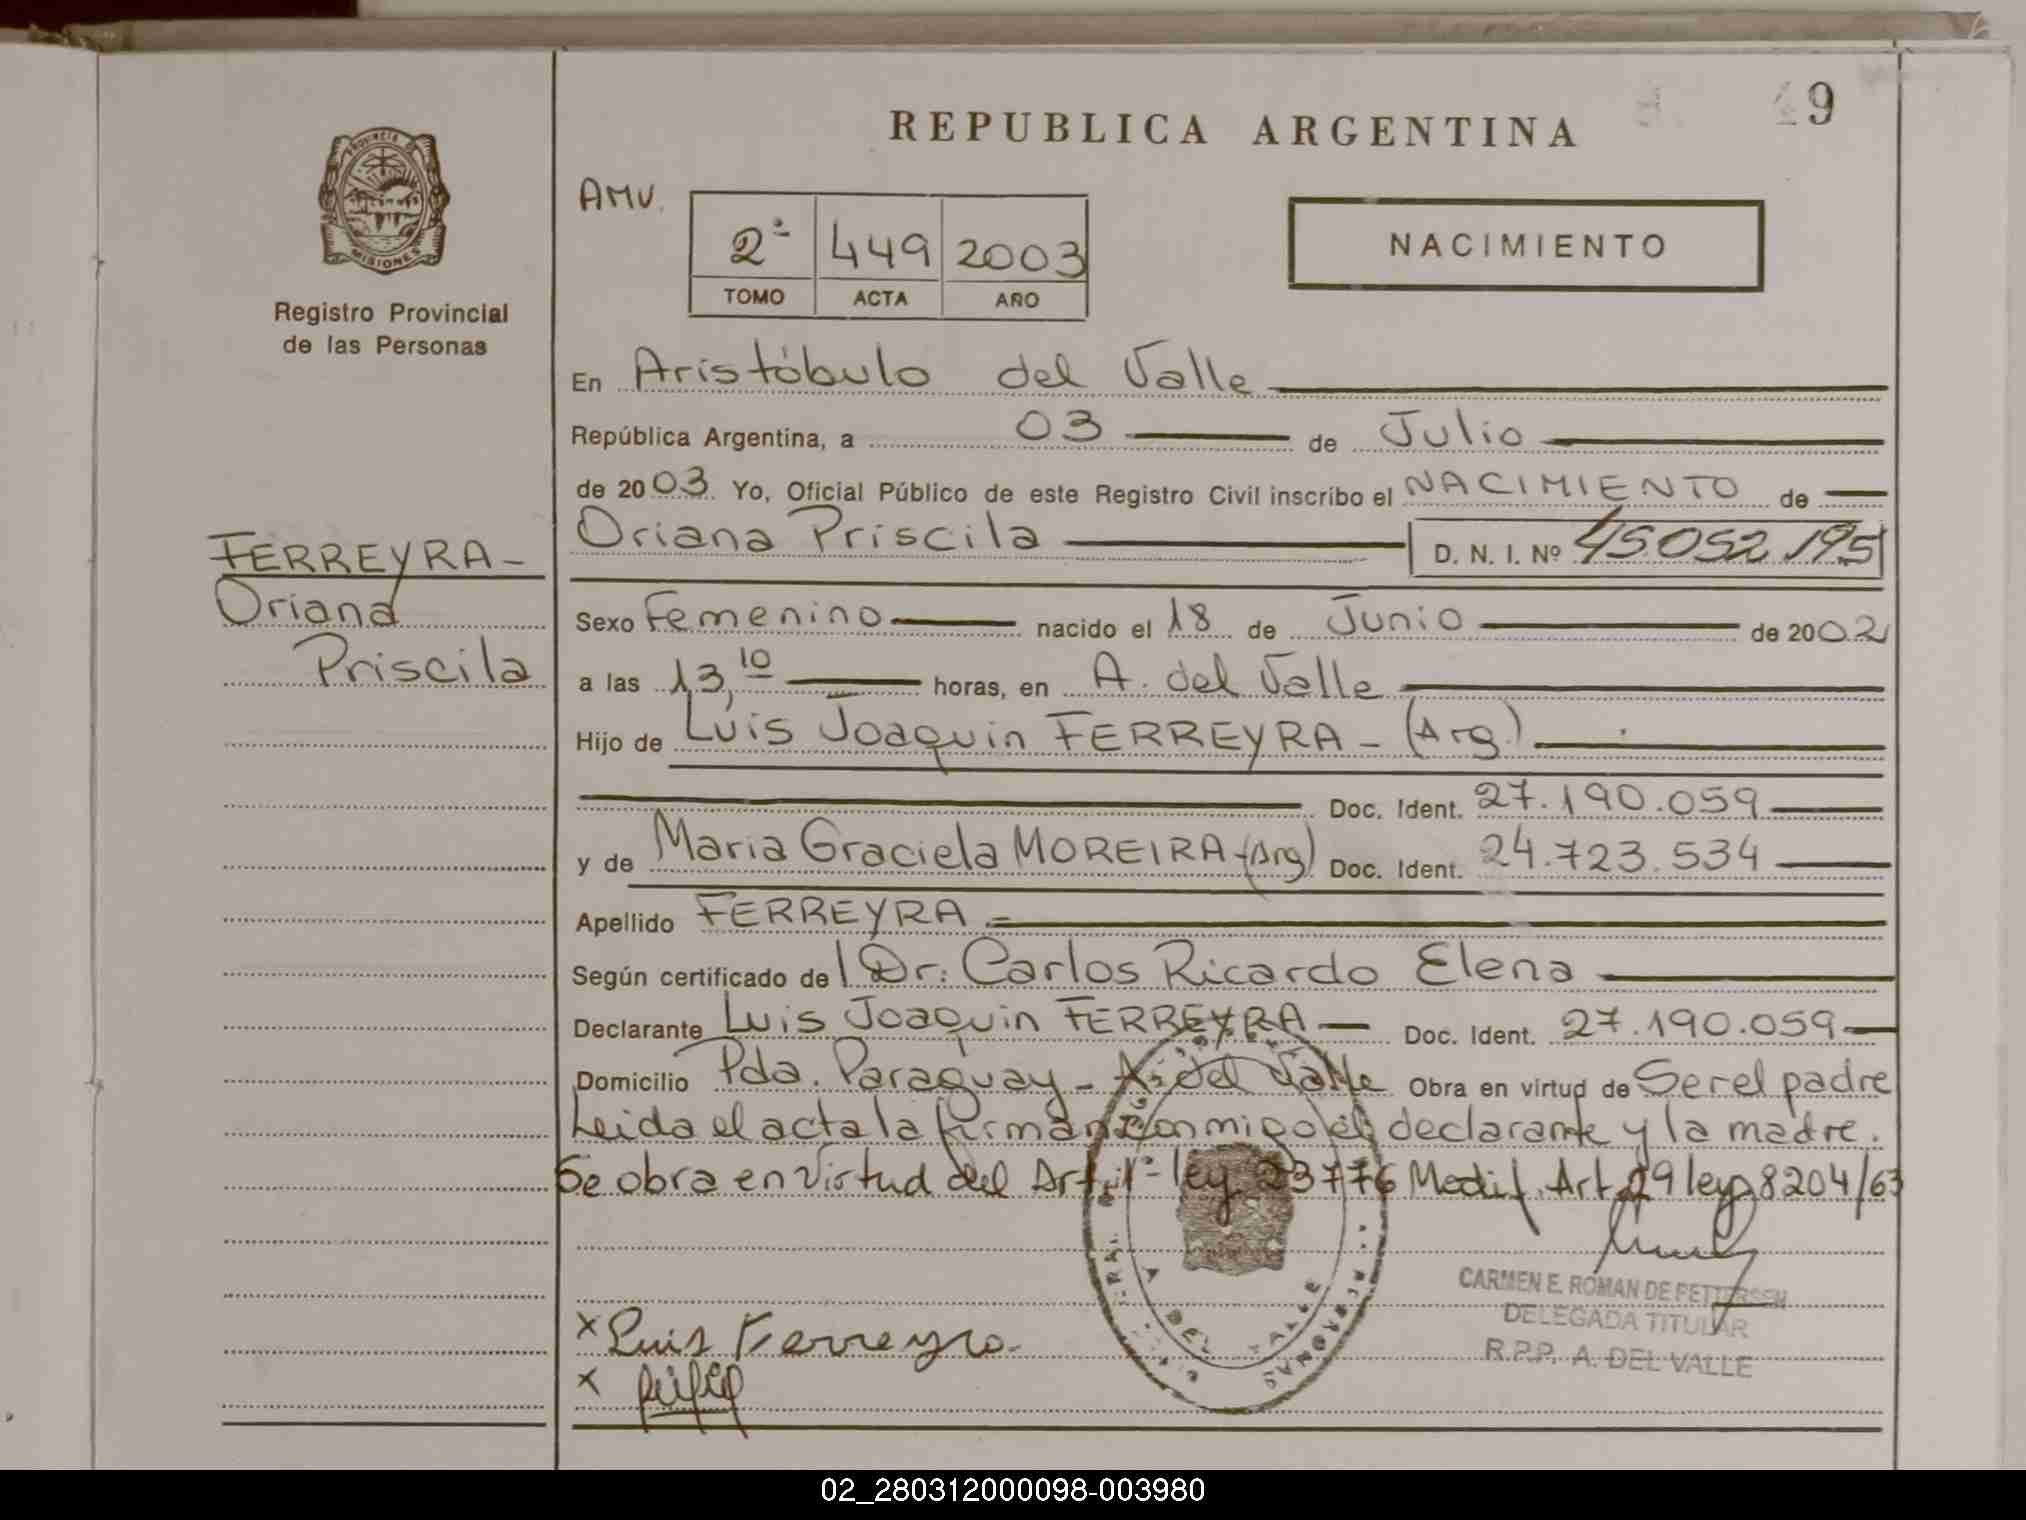 REPUBLICA ARGENTINA
9
PROVINCIA DE
MISIONES
Registro Provincial
de las Personas
AMV.
2ª 449 2003
TOMO ACTA AÑO
NACIMIENTO
En Aristóbulo del Valle
República Argentina, a 03 de Julio
de 2003 Yo, Oficial Público de este Registro Civil inscribo el NACIMIENTO de
Oriana Priscila D. N. I. Nº 45.052.195
FERREYRA-
Oriana
Priscila
Sexo Femenino nacido el 18 de Junio de 2002
a las 13,10 horas, en A. del Valle
Hijo de Luis Joaquin FERREYRA - (Arg.)
Doc. Ident. 27.190.059
y de Maria Graciela MOREIRA-(Arg) Doc. Ident. 24.723.534
Apellido FERREYRA
Según certificado de Dr. Carlos Ricardo Elena
Declarante Luis Joaquin FERREYRA Doc. Ident. 27.190.059
Domicilio Pda. Paraguay - A. del Valle Obra en virtud de Ser el padre
Leida el acta la firman conmigo el declarante y la madre.
Se obra en virtud del Art. 1º ley 23776 Modif. Art 29 ley 8204/63
CARMEN E. ROMAN DE PETTERSEN
DELEGADA TITULAR
R.P.P. A. DEL VALLE
A DEL VALLE
PERSONAS
x Luis Ferreyra
x
02_280312000098-003980